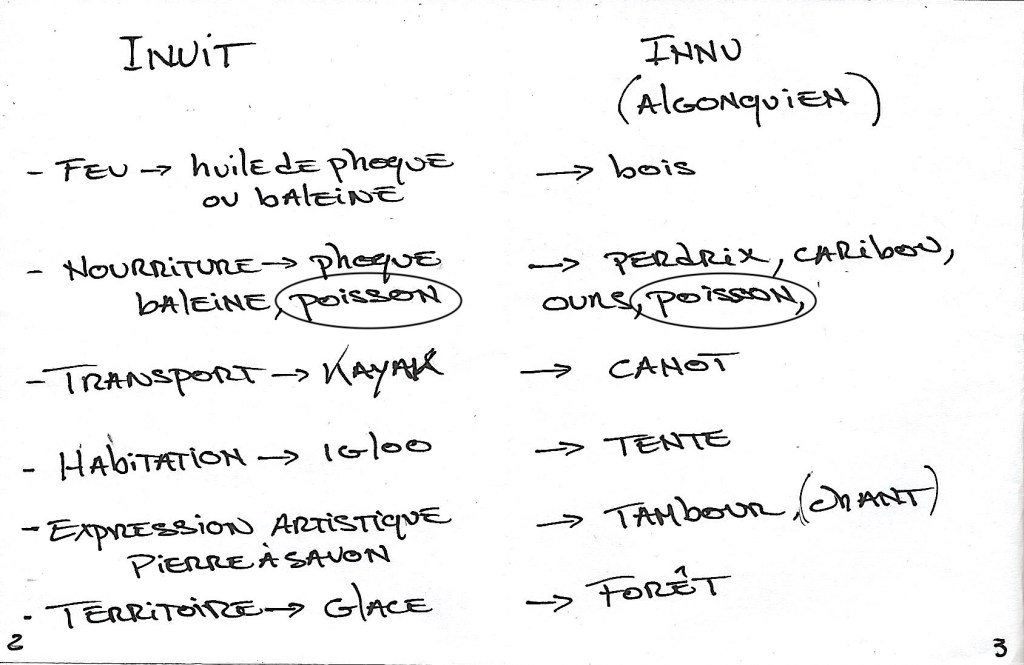 INUIT
- FEU → huile de phoque
ou baleine
- Nourriture → phoque
baleine, poisson
- Transport → Kayak
- Habitation → igloo
- Expression artistique
pierre à savon
- Territoire → glace
2
INNU
(Algonquien)
→ bois
→ perdrix, caribou,
ours, poisson,
→ canot
→ tente
→ tambour, (chant)
→ forêt
3